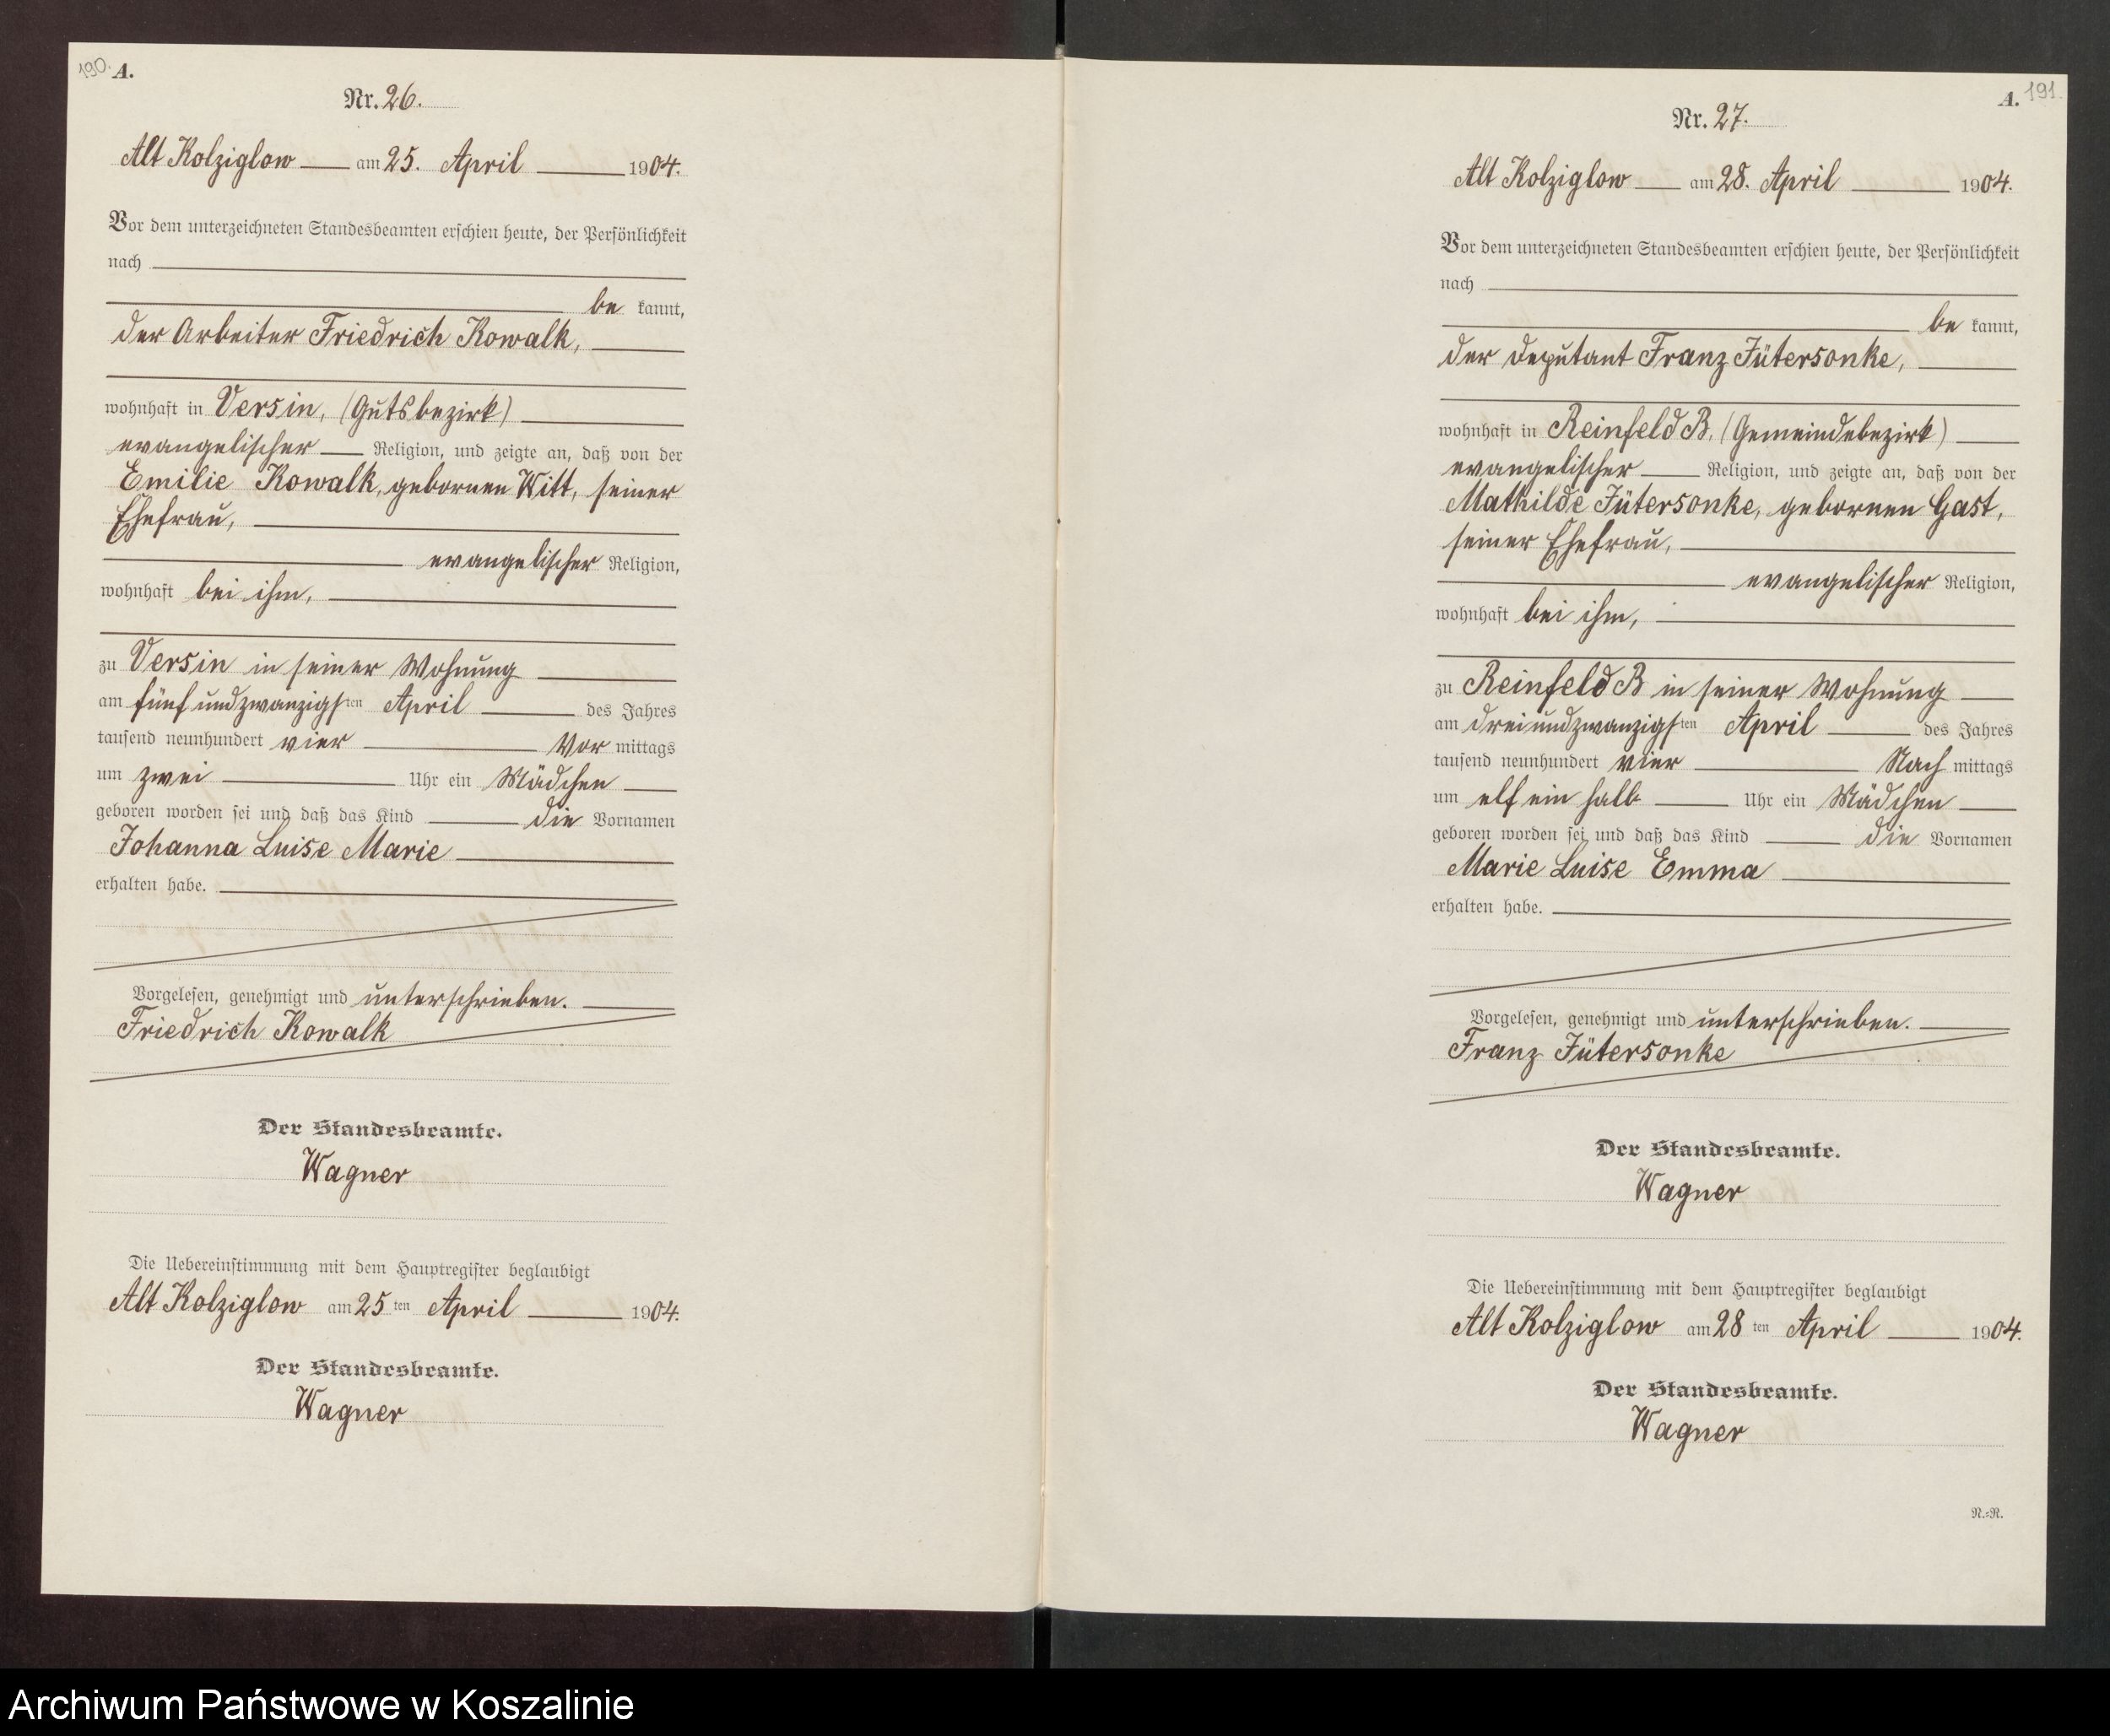 190. A.
Nr. 26.
Alt Kolziglow am 25. April 1904.
Vor dem unterzeichneten Standesbeamten erschien heute, der Persönlichkeit
nach
be kannt,
der Arbeiter Friedrich Kowalk,
wohnhaft in Versin, (Gutsbezirk)
evangelischer Religion, und zeigte an, daß von der
Emilie Kowalk, gebornen Witt, seiner
Ehefrau,
evangelischer Religion,
wohnhaft bei ihm,
zu Versin in seiner Wohnung
am fünf und zwanzigsten April des Jahres
tausend neunhundert vier Vor mittags
um zwei Uhr ein Mädchen
geboren worden sei und daß das Kind die Vornamen
Johanna Luise Marie
erhalten habe.
Vorgelesen, genehmigt und unterschrieben.
Friedrich Kowalk
Der Standesbeamte.
Wagner
Die Uebereinstimmung mit dem Hauptregister beglaubigt
Alt Kolziglow am 25 ten April 1904.
Der Standesbeamte.
Wagner
A. 191.
Nr. 27.
Alt Kolziglow am 28. April 1904.
Vor dem unterzeichneten Standesbeamten erschien heute, der Persönlichkeit
nach
be kannt,
der Deputant Franz Jütersonke,
wohnhaft in Reinfeld B, (Gemeindebezirk)
evangelischer Religion, und zeigte an, daß von der
Mathilde Jütersonke, gebornen Gast,
seiner Ehefrau,
evangelischer Religion,
wohnhaft bei ihm,
zu Reinfeld B in seiner Wohnung
am drei und zwanzigsten April des Jahres
tausend neunhundert vier Nach mittags
um elf ein halb Uhr ein Mädchen
geboren worden sei und daß das Kind die Vornamen
Marie Luise Emma
erhalten habe.
Vorgelesen, genehmigt und unterschrieben.
Franz Jütersonke
Der Standesbeamte.
Wagner
Die Uebereinstimmung mit dem Hauptregister beglaubigt
Alt Kolziglow am 28 ten April 1904.
Der Standesbeamte.
Wagner
N.=R.
Archiwum Państwowe w Koszalinie